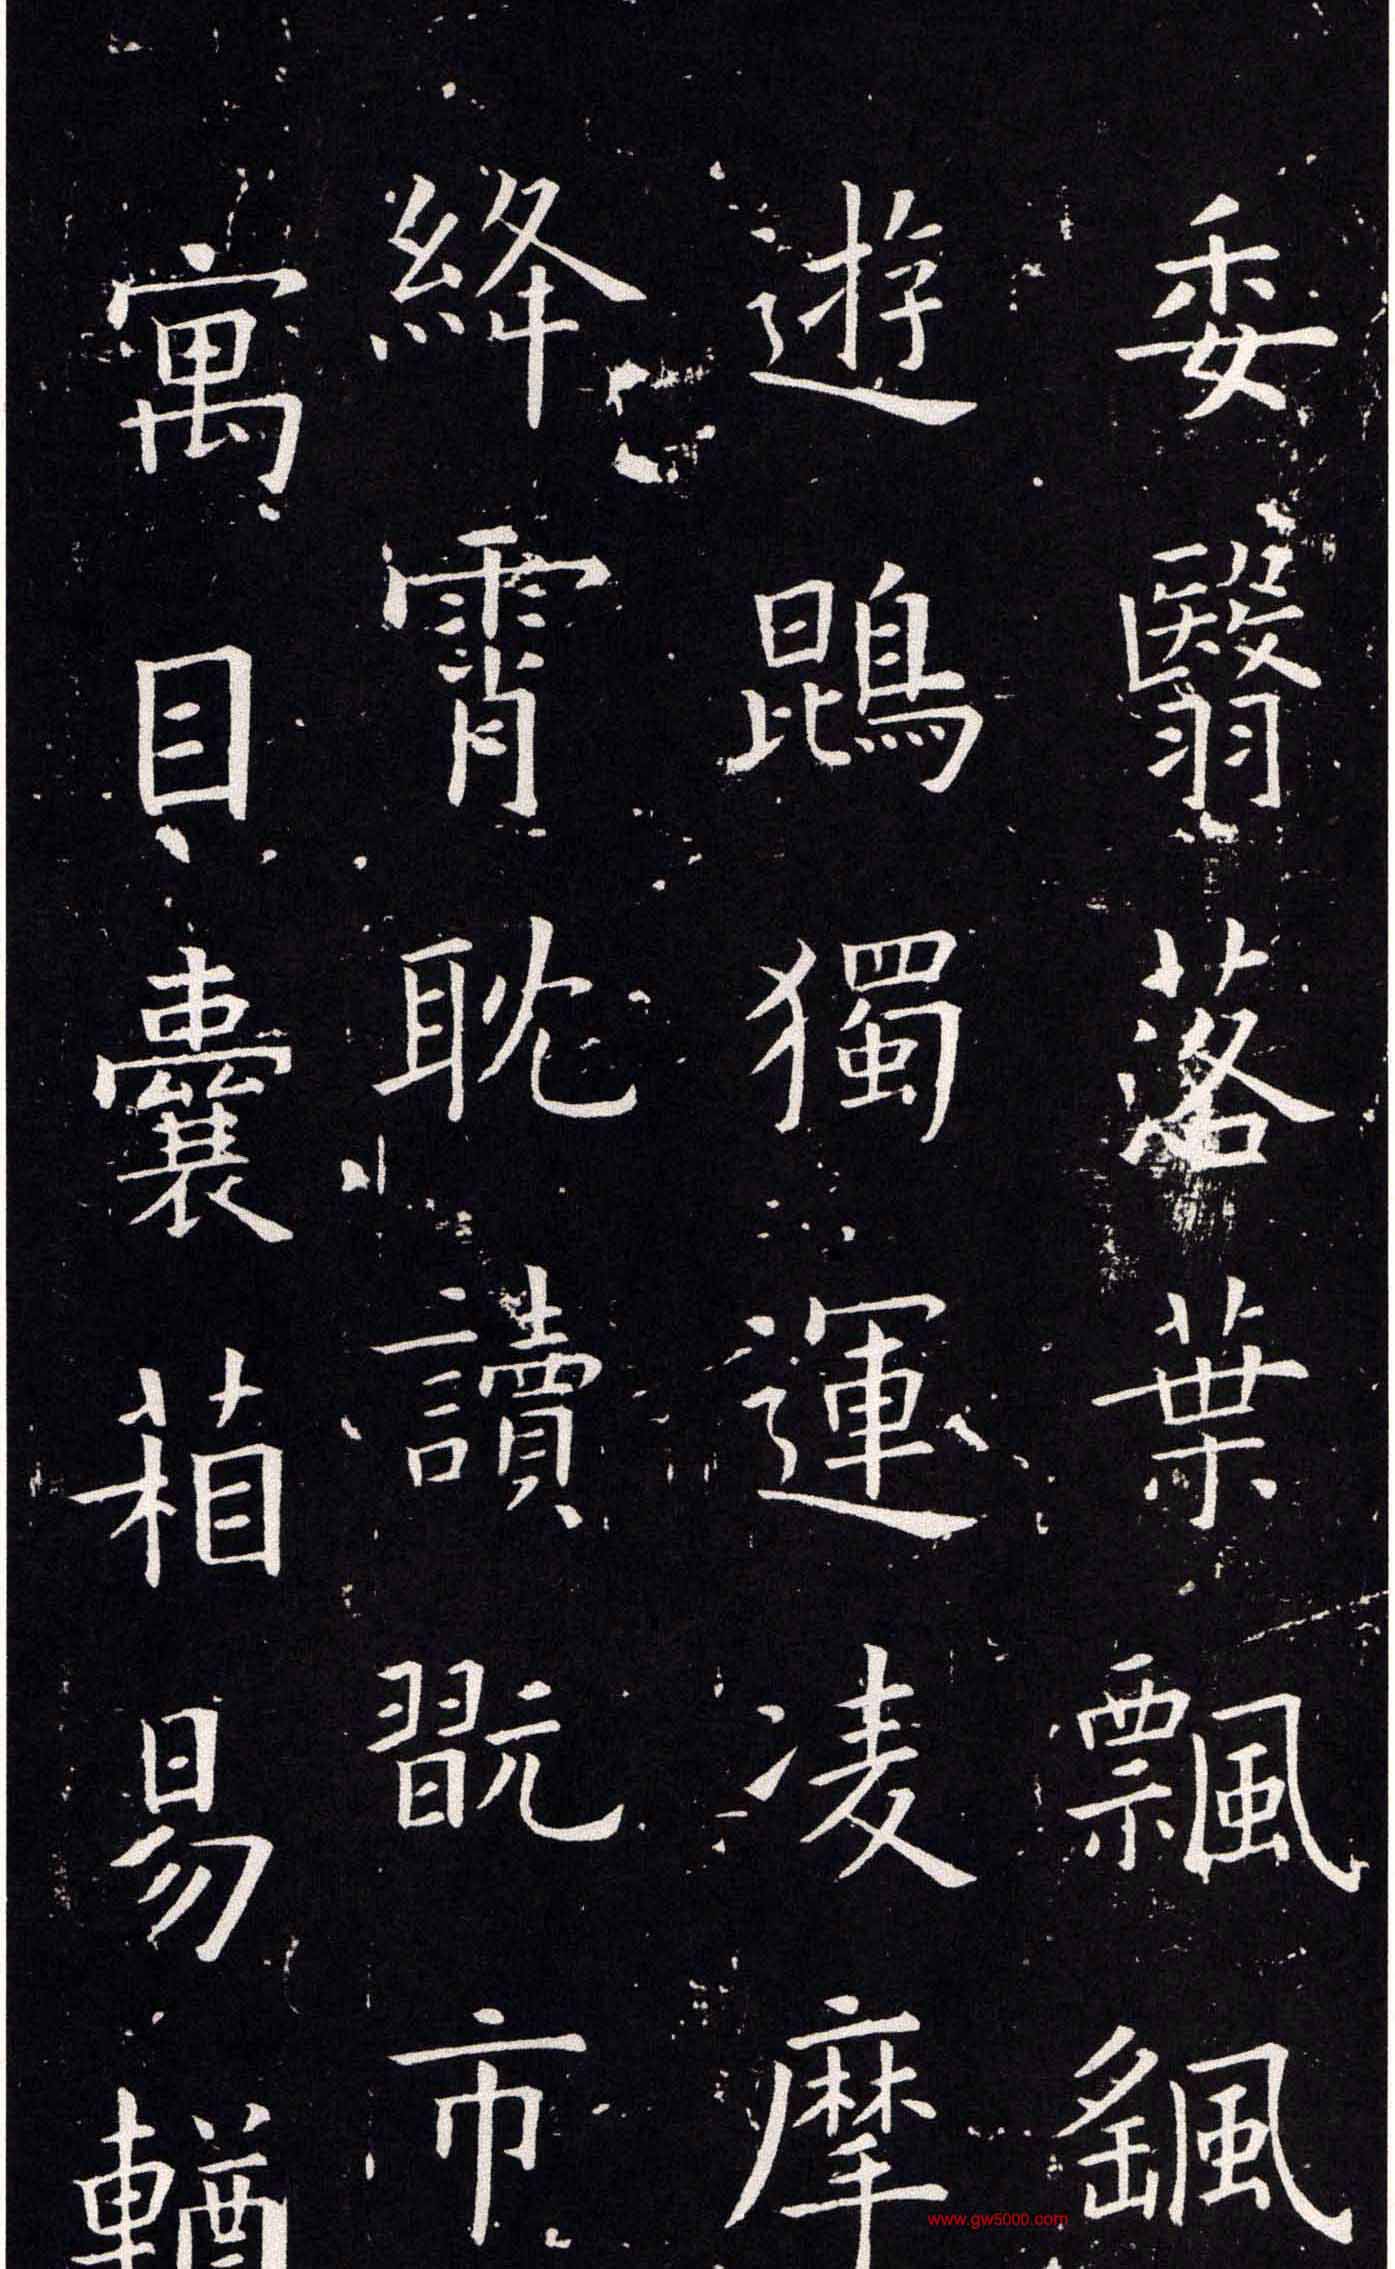 委翳落葉飄颻
遊鵾獨運凌摩
絳霄耽讀翫市
寓目囊葙易輶
www.gw5000.com